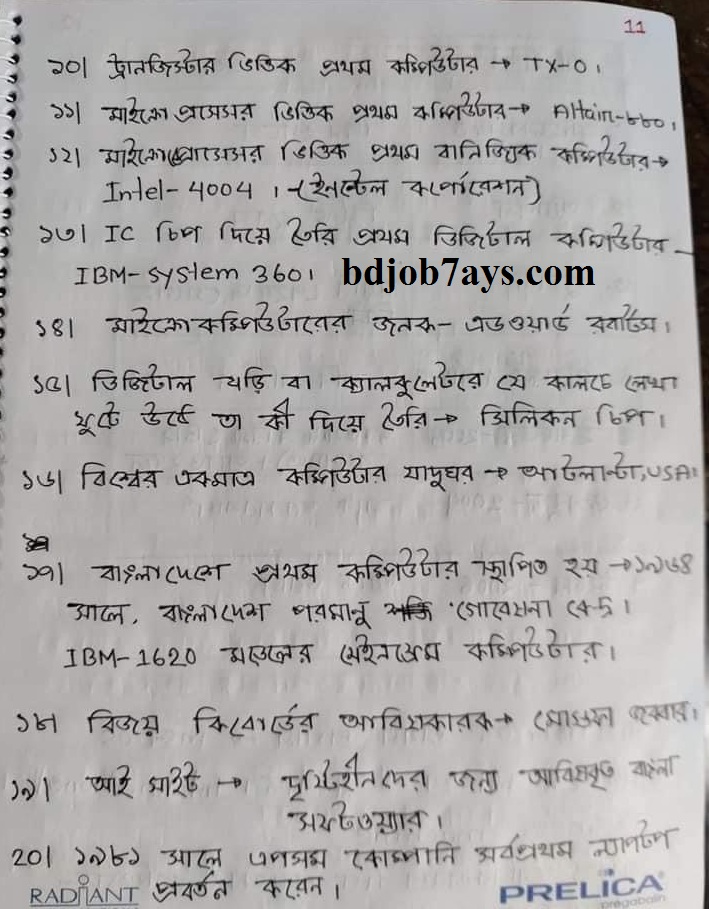 11
১০। ট্রানজিস্টার ভিত্তিক প্রথম কম্পিউটার → TX-0।
১১। মাইক্রো প্রসেসর ভিত্তিক প্রথম কম্পিউটার→ Altair-৮৮০।
১২। মাইক্রোপ্রোসেসর ভিত্তিক প্রথম বানিজ্যিক কম্পিউটার→
Intel-4004 । -(ইনটেল কর্পোরেশন)
১৩। IC চিপ দিয়ে তৈরি প্রথম ডিজিটাল কম্পিউটার -
IBM-system 360। bdjob7ays.com
১৪। মাইক্রোকম্পিউটারের জনক- এডওয়ার্ড রবার্টস।
১৫। ডিজিটাল ঘড়ি বা ক্যালকুলেটরে যে কালচে লেখা
ফুটে উঠে তা কী দিয়ে তৈরি→ সিলিকন চিপ।
১৬। বিশ্বের একমাত্র কম্পিউটার যাদুঘর → আটলান্টা,USA।
১৭। বাংলাদেশে প্রথম কম্পিউটার স্থাপিত হয় →১৯৬৪
সালে, বাংলাদেশ পরমানু শক্তি গোবেষনা
IBM-1620 মডেলের মেইনফ্রেম কম্পিউটার।
১৮। বিজয় কিবোর্ডের আবিষ্কারক→ মোস্তফা জব্বার।
১৯। আই সাইট → দৃষ্টিহীনদের জন্য আবিষ্কৃত বাংলা
সফটওয়্যার।
20। ১৯৮১ সালে এপসম কোম্পানি সর্বপ্রথম ল্যাপটপ
প্রবর্তন করেন।
RADIANT PRELICA
pregabalin